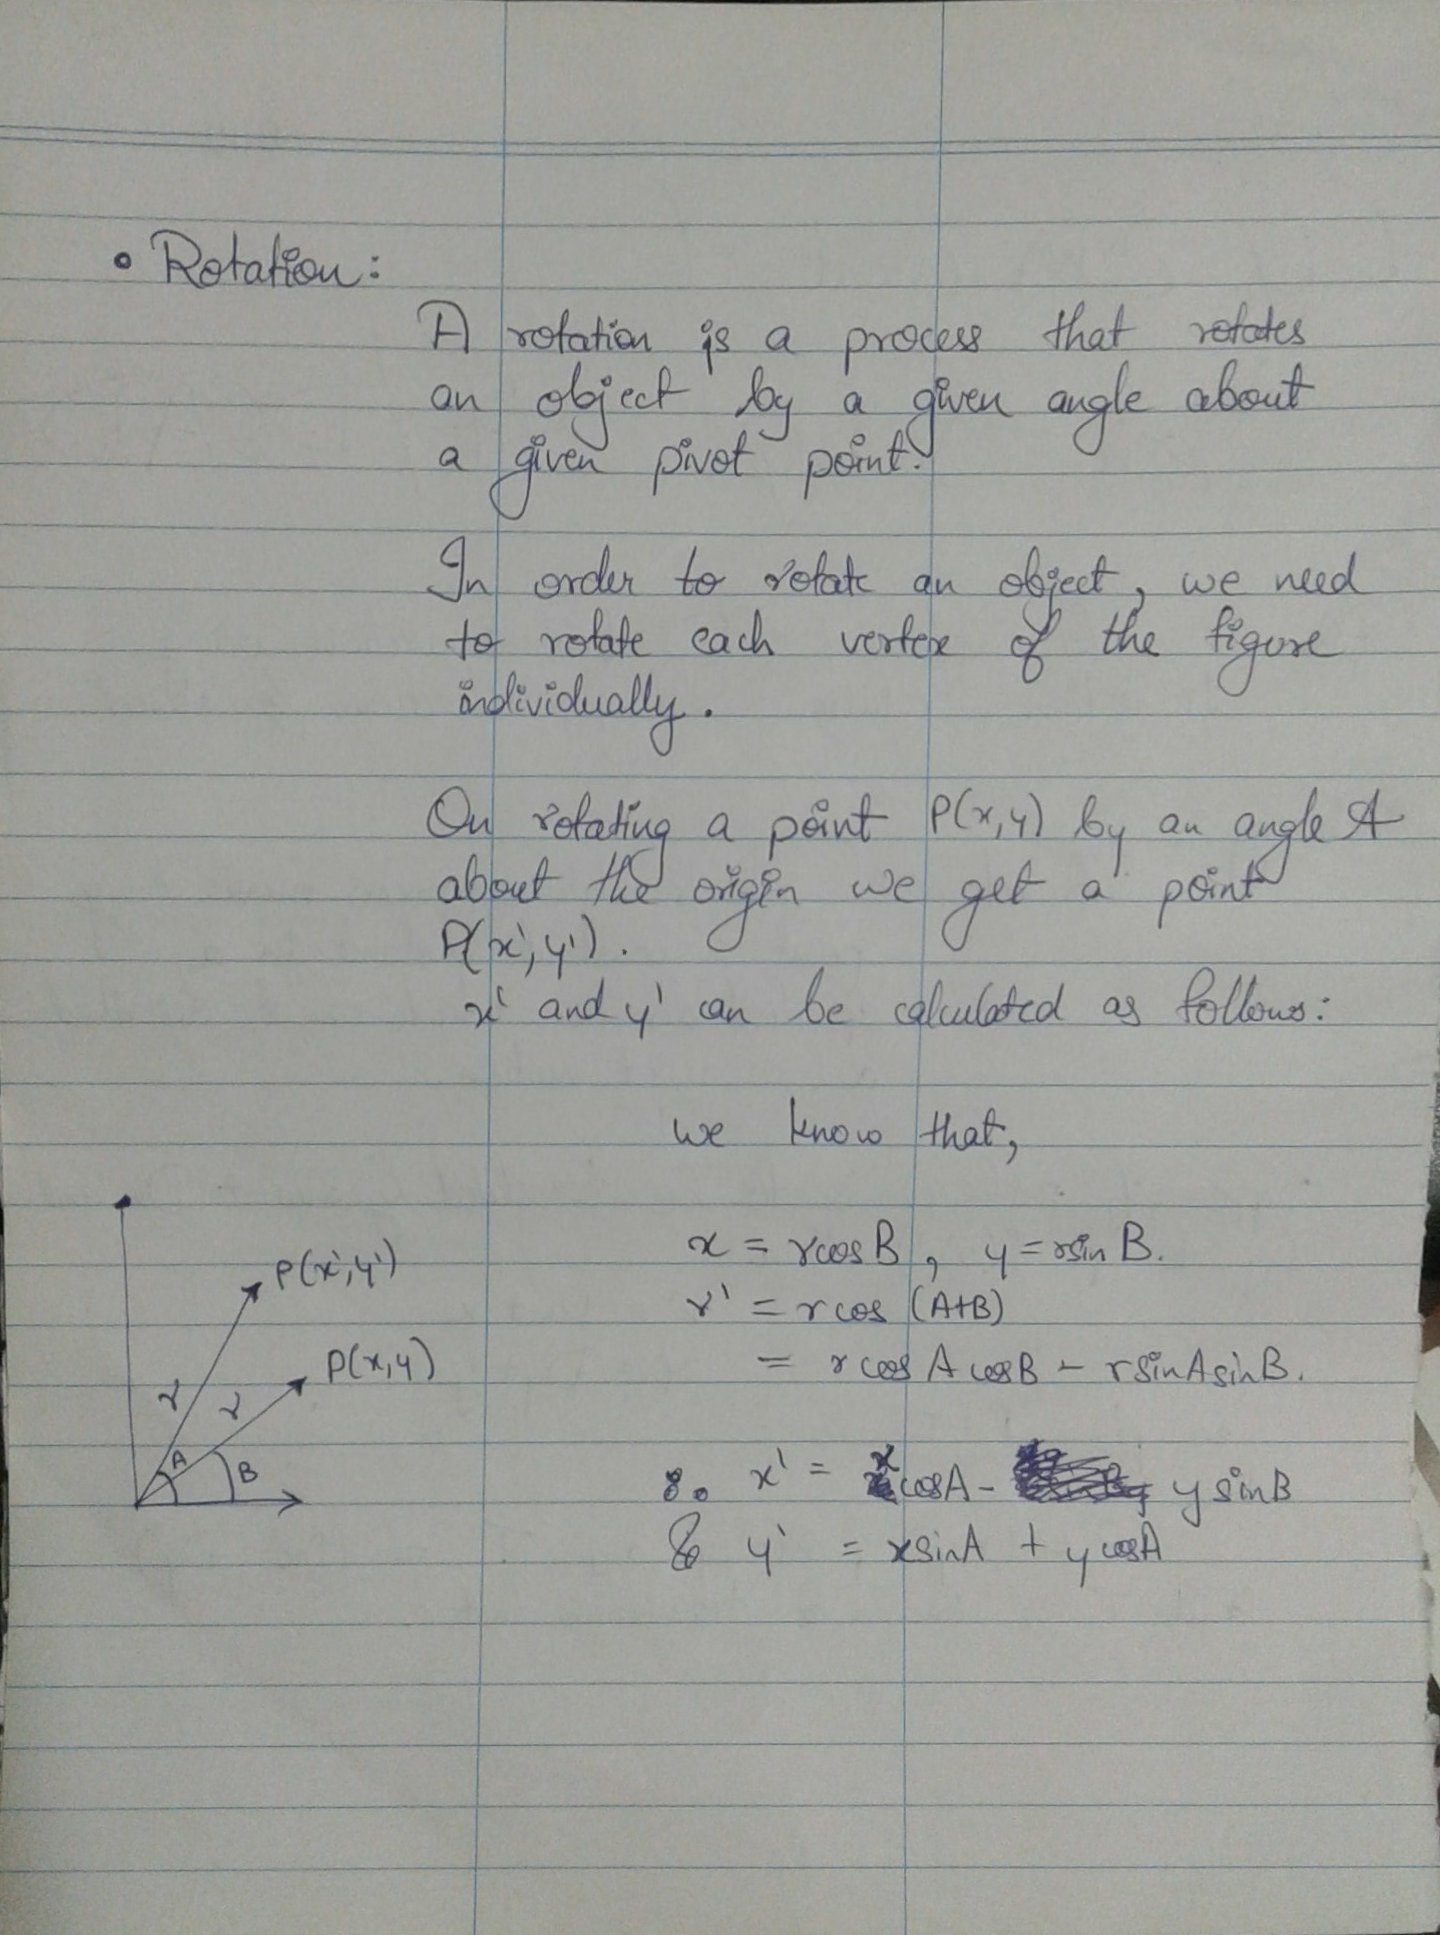 • Rotation:
A rotation is a process that rotates
an object by a given angle about
a given pivot point.
In order to rotate an object, we need
to rotate each vertex of the figure
individually.
On rotating a point P(x,y) by an angle A
about the origin we get a point
P(x',y').
x' and y' can be calculated as follows:
we know that,
x = rcosB, y = rsinB.
r' = rcos (A+B)
= rcosAcosB - rsinAsinB.
P(x',y')
P(x,y)
r r
A
B
x' = xcosA - ysinB
& y' = xsinA + ycosA